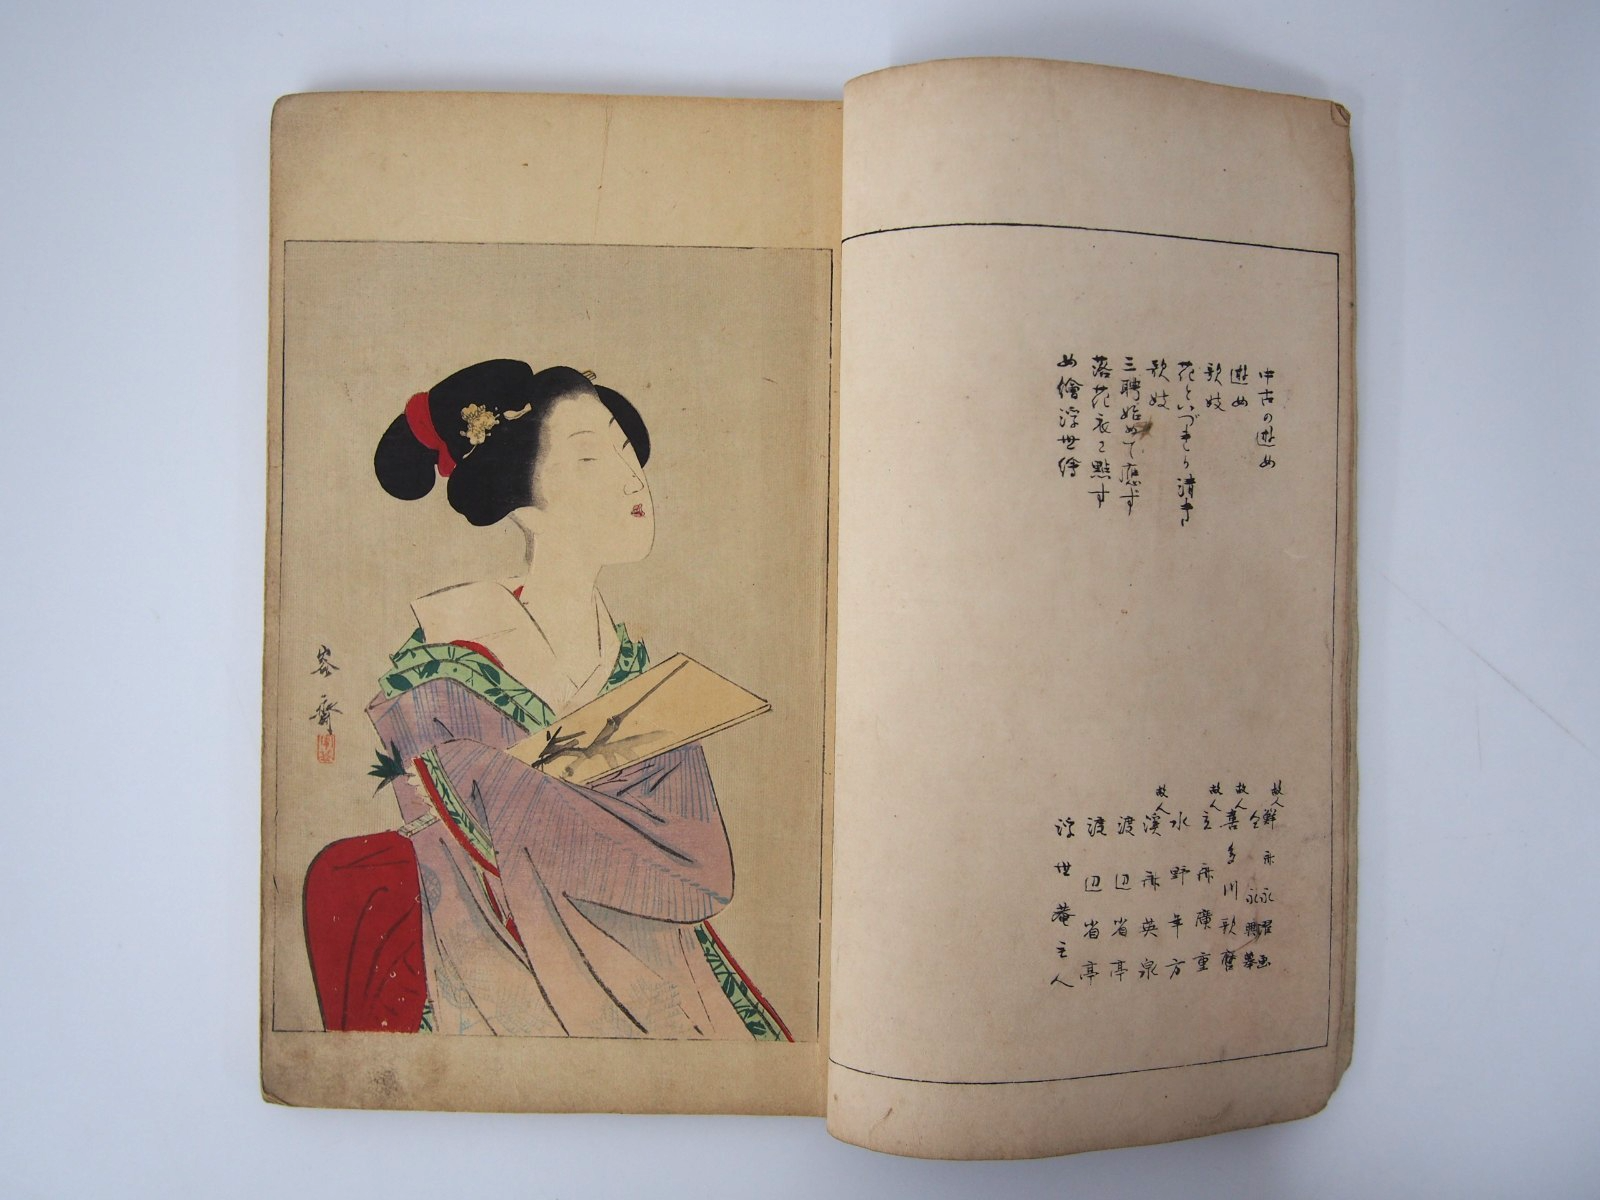 中古の遊女
遊女
歌妓
花といづれか清き
歌妓
三聘始めて應ず
落花衣に點ず
女繪浮世繪
故人鮮斎永濯画
仝永興筆
故人喜多川歌麿
故人立斎廣重
水野年方
故人溪斎英泉
渡辺省亭
渡辺省亭
浮世菴主人
容齋